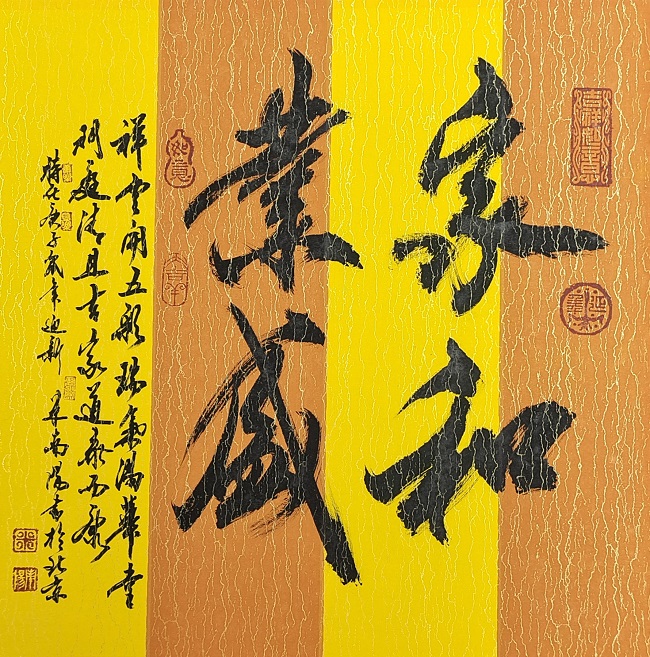 家和
業盛
祥雲開五彩瑞氣滿華堂
門庭清且吉家道泰而康
時在庚子鼠年迎新 尚陽書於北京
如意